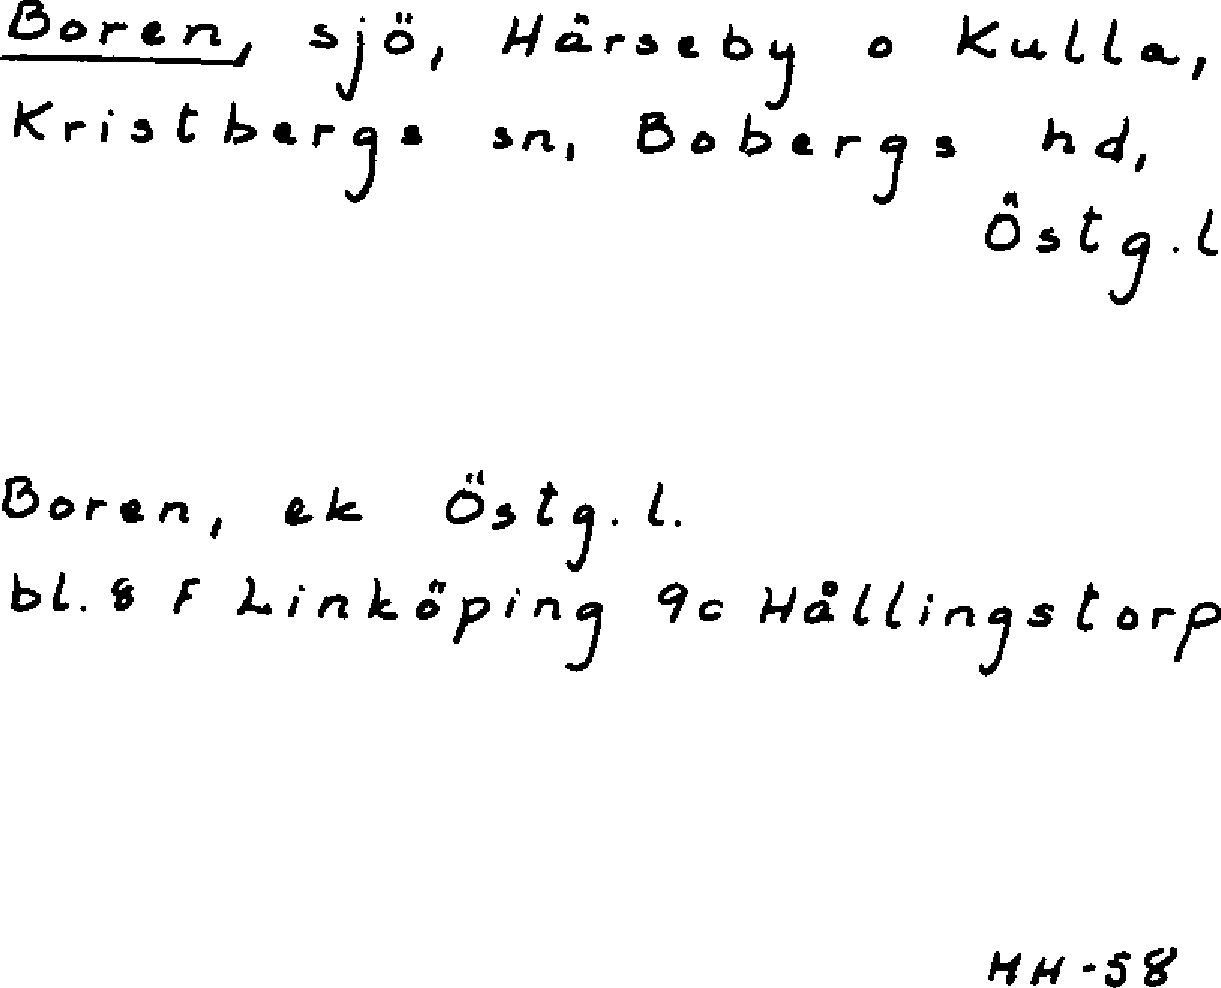 Boren, sjö, Härseby o Kulla,
Kristbergs sn, Bobergs hd,
Östg.l
Boren, ek Östg.l.
bl. 8 F Linköping 9c Hållingstorp
HH-58